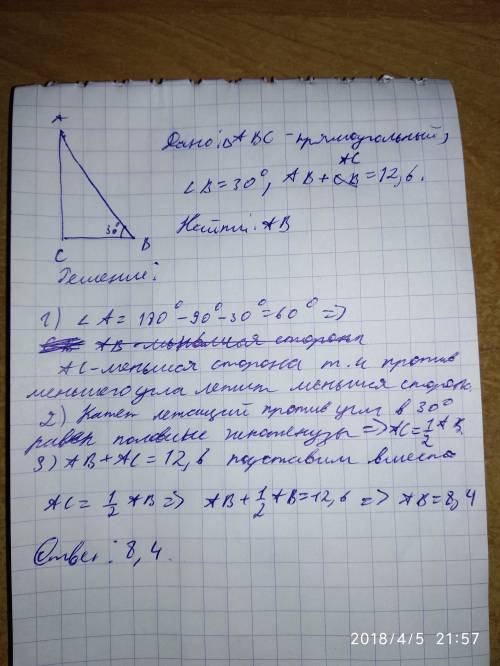 A
Дано: △ABC - прямоугольный,
∠B=30°, AB+CB=12,6.
AC
Найти: AB
30°
C
B
Решение:
1) ∠A=180°-90°-30°=60° =>
AB - меньшая сторона
AC - меньшая сторона т.к против
меньшего угла лежит меньшая сторона.
2) Катет лежащий против угла в 30°
равен половине гипотенузы => AC=1/2 AB.
3) AB+AC=12,6 подставим вместо
AC=1/2 AB => AB+1/2 AB=12,6 => AB=8,4
Ответ: 8,4.
2018/4/5 21:57